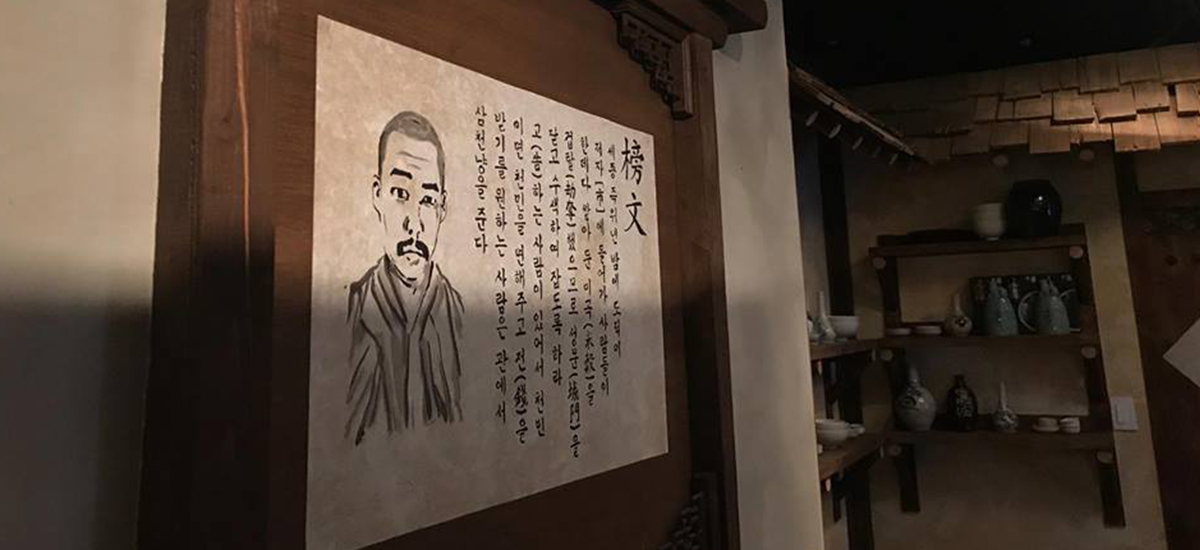 榜文
세종 즉위년 밤에 도적이
저자(市)에 들어가 사람들이
한데다 쌓아 둔 미곡(米穀)을
겁탈(劫奪)했으므로 성문(城門)을
닫고 수색하여 잡도록 하라
고(告)하는 사람이 있어서 천민
이면 천민을 면해주고 전(錢)을
받기를 원하는 사람은 관에서
삼천냥을 준다